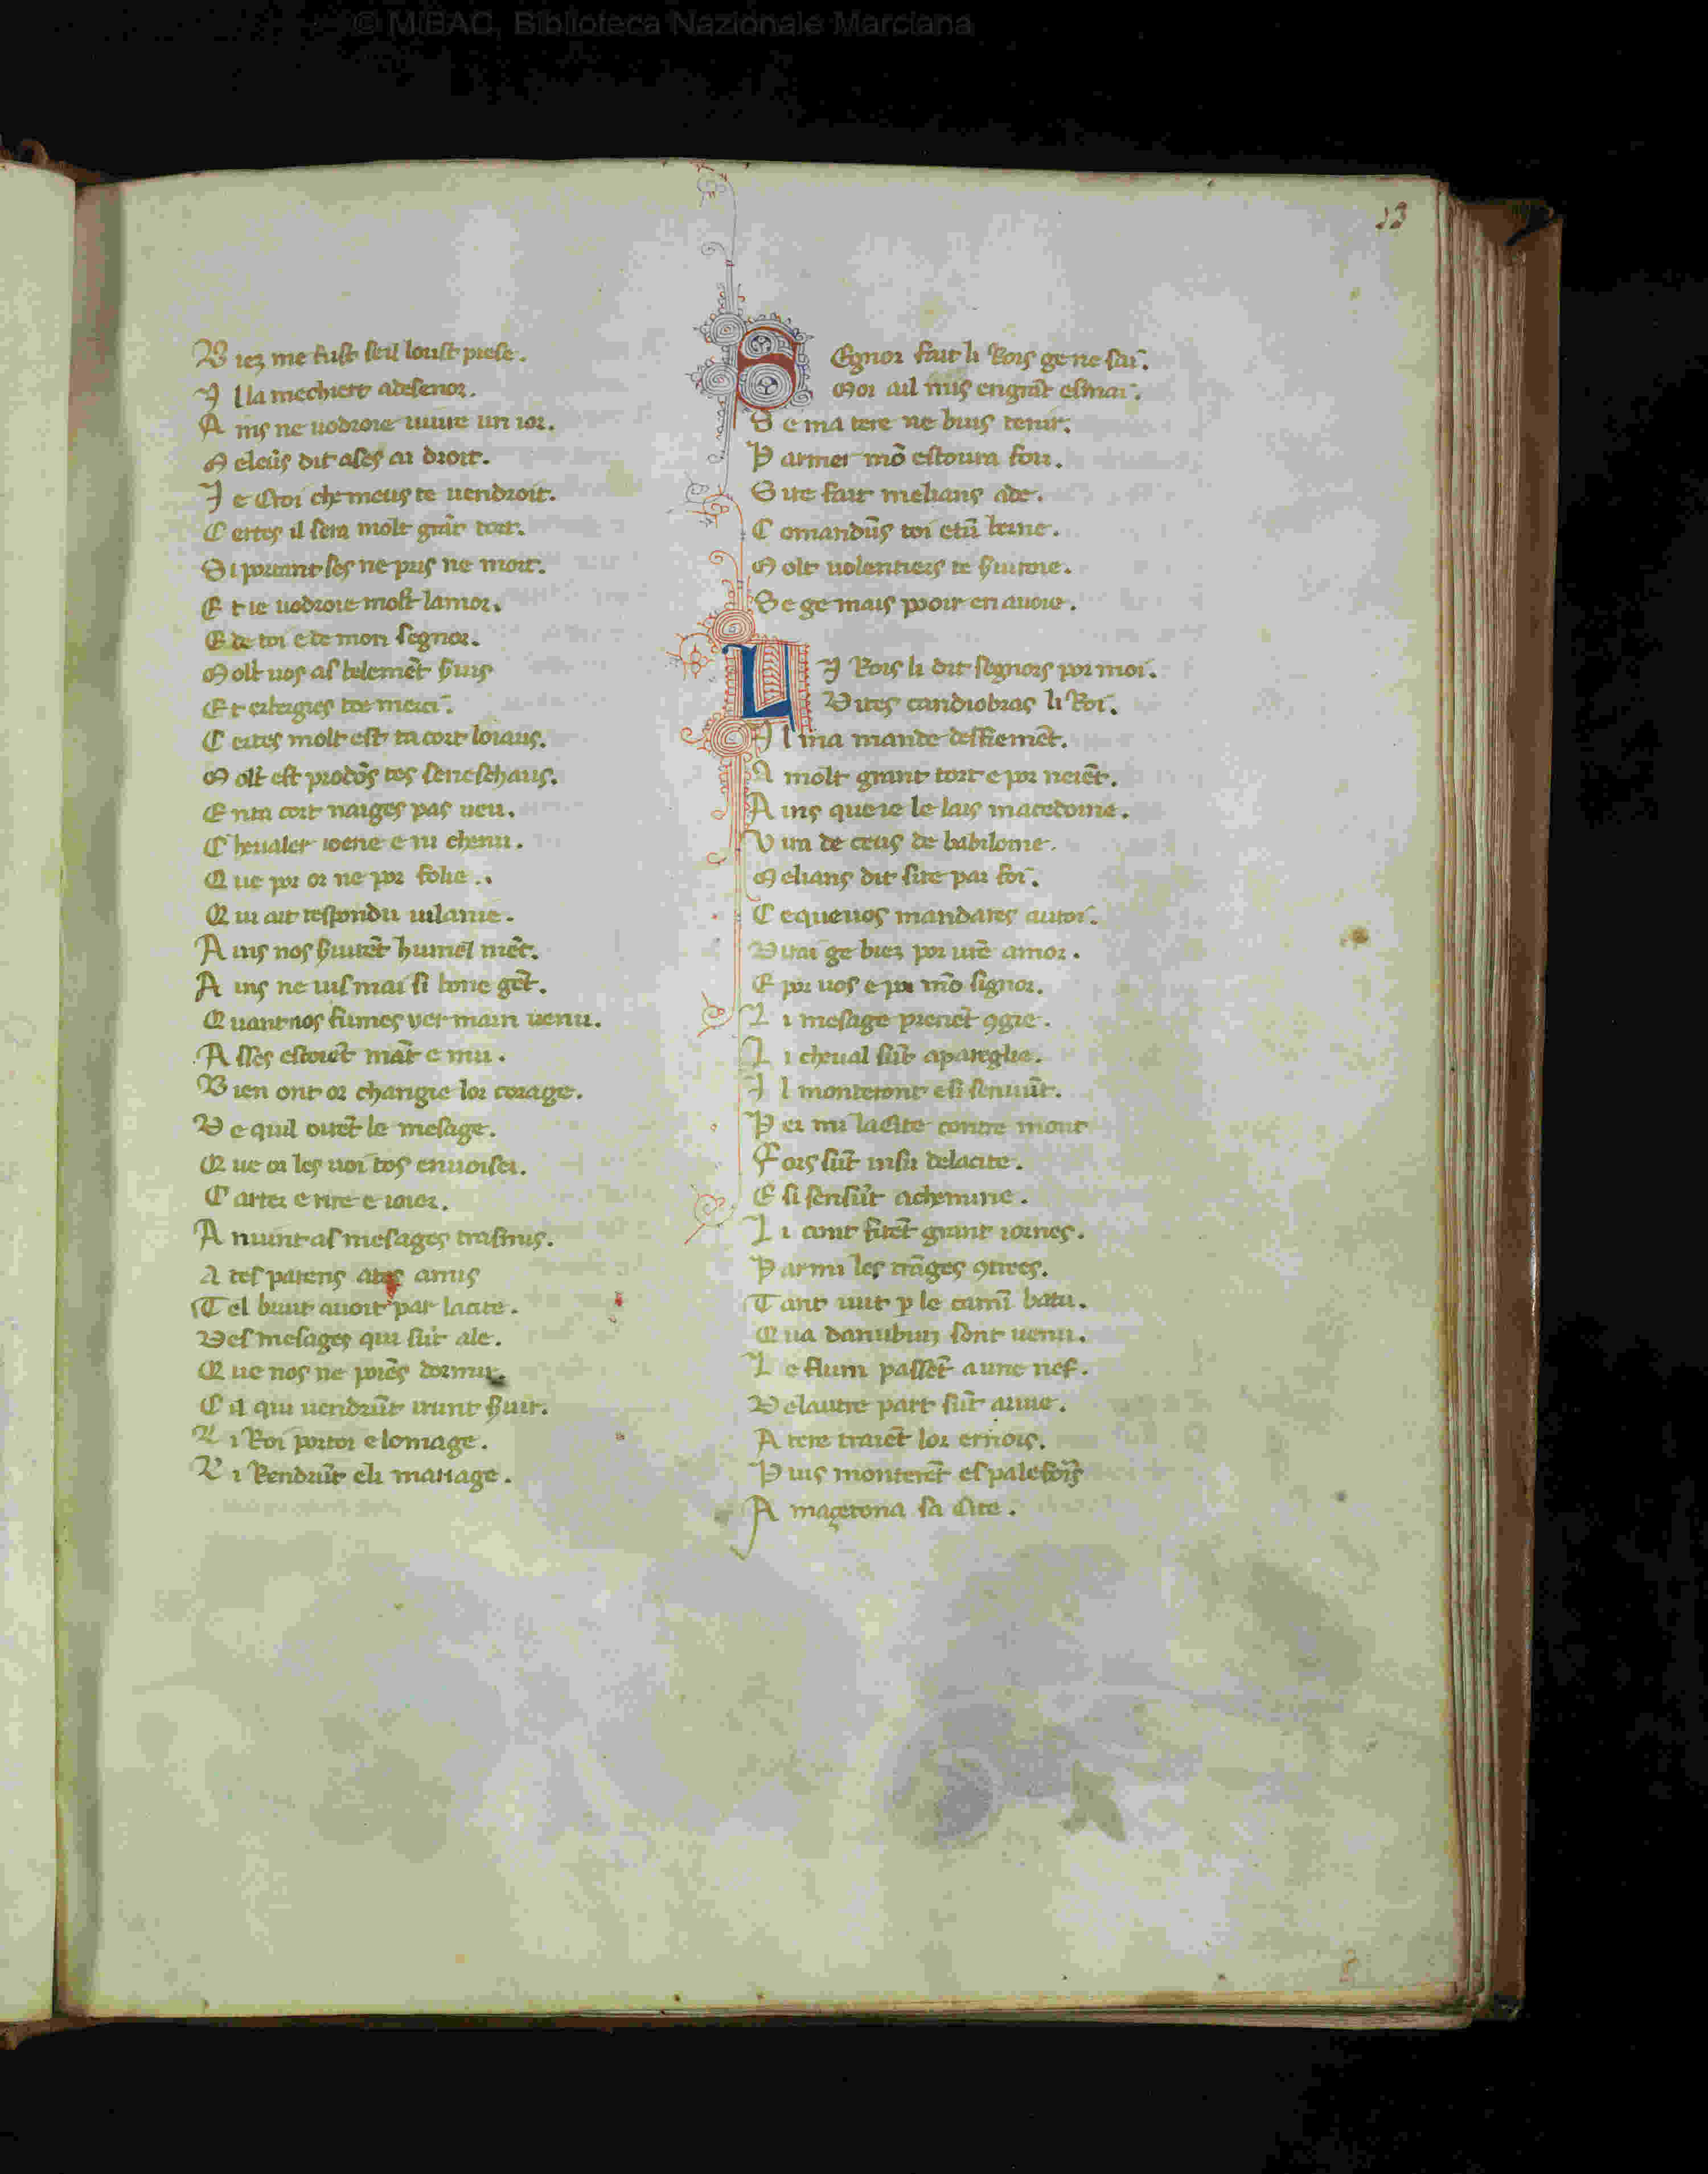 © MiBAC, Biblioteca Nazionale Marciana
13
B iez me fust seil loust prese.
I l la mechiere adesenor.
A ins ne uodroie uiure un ior.
M eleũs dit ases ai droit.
J e Croi che meus te uendroit.
C ertes il sera molt grãt tort.
S i portant ses ne pris ne mort.
E t ie uodroie molt lamor.
E de toi e de mon segnor.
M olt uos as belemẽt s̃uis
E t erbergies toe merci.
C ertes molt est ta cort loiaus.
M olt est prodõs tes seneschaus.
E nta cort naiges pas ueu.
C heualer ioene e ni chenu.
Q ue por or ne por folie.
Q ui ait respondu uilanie.
A ins nos s̃uirẽt humel mẽt.
A ins ne uis mai si bone gẽt.
Q uant nos fumes uer main uenu.
A sses estoiẽt mat e mu.
B ien ont or changie lor corage.
D e quil ouẽt le mesage.
Q ue or les uoi tos enuoisei.
C arter e rire e ioier.
A nuunt as mesages trasmis.
A tes parens a tes amis
T el bruit auoit par lacite.
D es mesages qui sũt ale.
Q ue nos ne poiẽs dormir.
C il qui uendrũt irunt s̃uir.
L i Roi portoi elomage.
L i Rendrũt eli mariage.
S Egnor fait li Rois ge ne sai.
Moi ail mis engrãt esmai.
S e ma tere ne buis tenir.
P armei mõ estoura foir.
S ire fait melians ade.
C omandũs toi etũ berne.
M olt uolentiers te s̃uiroie.
S e ge mais pooir en auoie.
L I Rois li dit segnors por moi.
Dites candiobras li Roi.
I l ma mande desfiemẽt.
A molt grant tort e por neiẽt.
A ins que ie le lais macedoine.
V ira de ceus de babiloine.
M elians dit sire par foi.
C e que uos mandares au roi.
D irai ge biez por urẽ amor.
E por uos e por mõ signor.
L i mesage prenẽt 9gie.
L i cheual sũt apareglie.
I l monteront e si senuũt.
P er mi la Cite contre mont
F ors sũt insu delacite.
E si sensũt achemine.
L i cont firẽt grant iornes.
P armi les trãges 9trees.
T ant uut p le camĩ batu.
Q ua danubiuz sont uenu.
L e flum passẽt a une nef.
D elautre part sũt ariue.
A tere traiẽt lor ernois.
P uis monterẽt es palefrois
A magetona sa Cite.